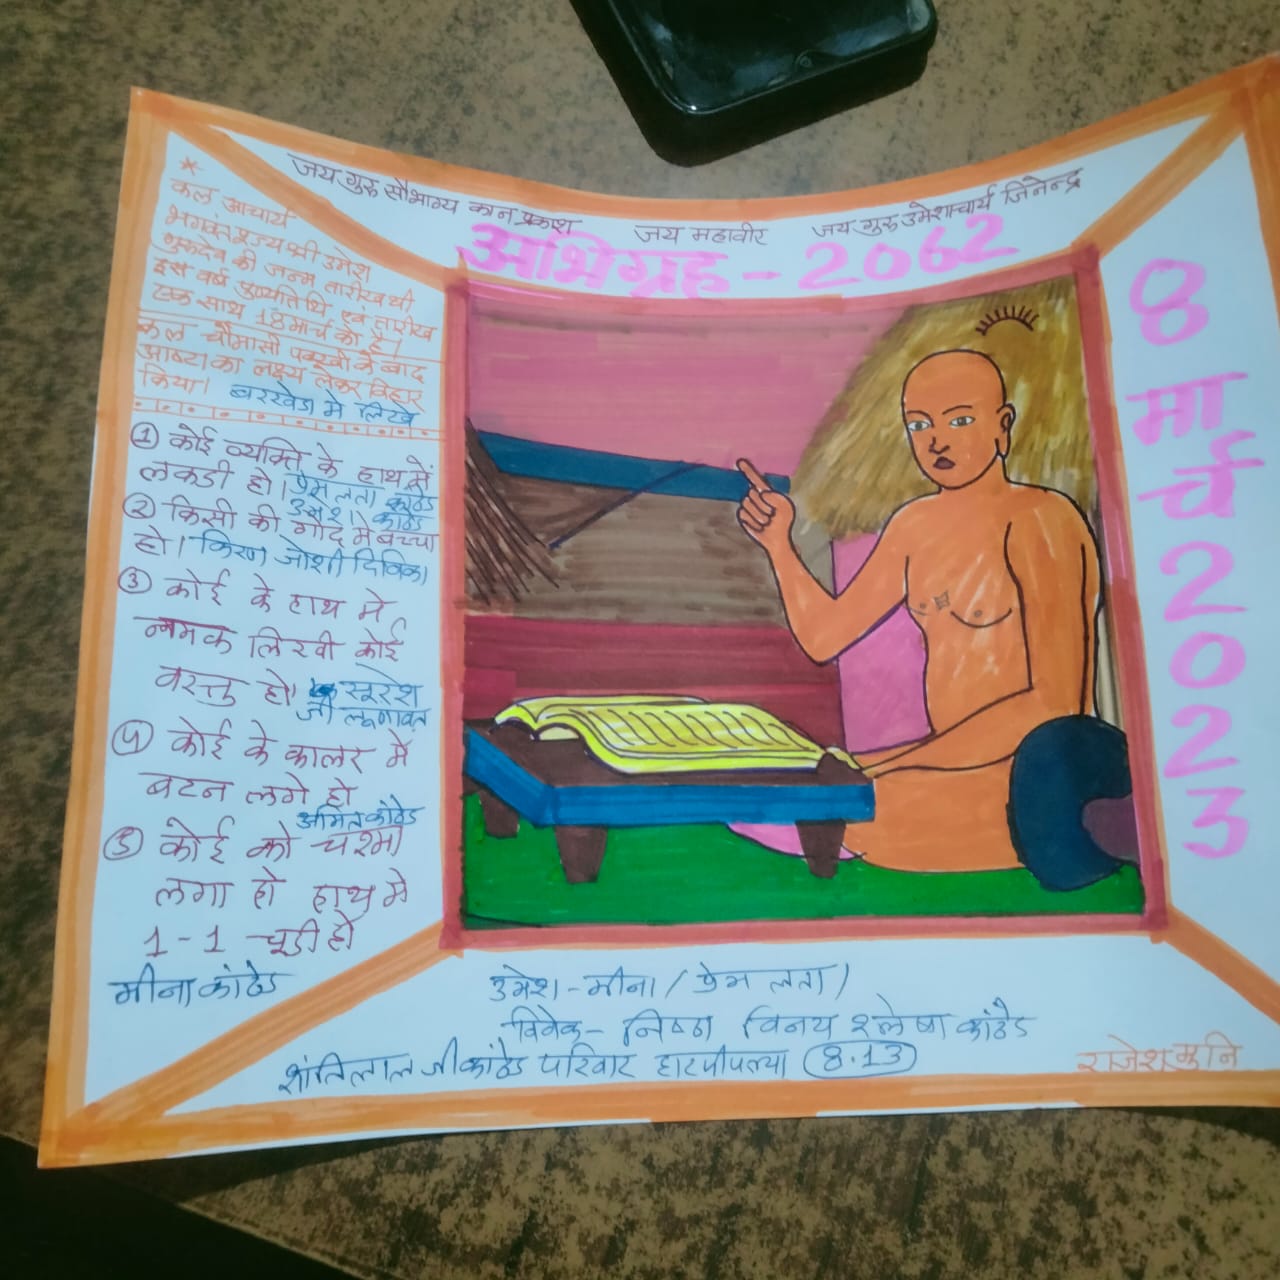 जय गुरु सौभाग्य कान प्रकाश
जय महावीर
जय गुरु उमेशाचार्य जिनेन्द्र
अभिग्रह - 2062
8 मार्च 2023
*
कल आचार्य
भगवंत पूज्य श्री उमेश
गुरुदेव की जन्म तारीख थी
इस वर्ष पुण्यतिथि एवं तारीख
एक साथ 18 मार्च को है।
कल चौमासी पक्खी के बाद
आष्टा का लक्ष्य लेकर विहार
किया। बरखेडा मे लिखे
① कोई व्यक्ति के हाथ में
लकडी हो। प्रेम लता कांठेड
उमेश कांठेड
② किसी की गोद मे बच्चा
हो। किरण जोशी दिविका
③ कोई के हाथ मे
नमक लिखी कोई
वस्तु हो। सूरेश
जी लूणावत
④ कोई के कालर मे
बटन लगे हो
अमित कांठेड
⑤ कोई को चश्मा
लगा हो हाथ मे
1-1 चूडी हो
मीना कांठेड
उमेश - मीना / प्रेम लता /
विवेक - निष्ठा विनय श्लेषा कांठेड
शांतिलाल जी कांठेड परिवार हाटपीपल्या 8.13
राजेश मुनि